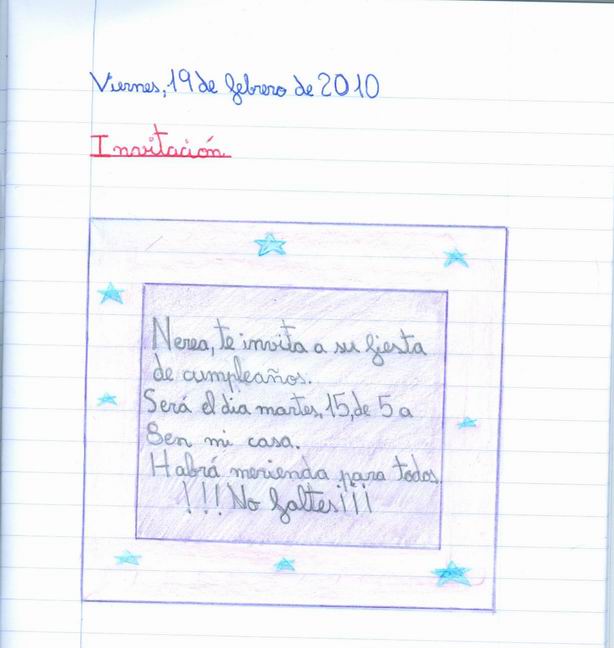 Viernes, 19 de febrero de 2010
Invitación
Nerea, te invita a su fiesta
de cumpleaños.
Será el dia martes, 15, de 5 a
8 en mi casa.
Habrá merienda para todos.
¡¡¡No faltes!!!